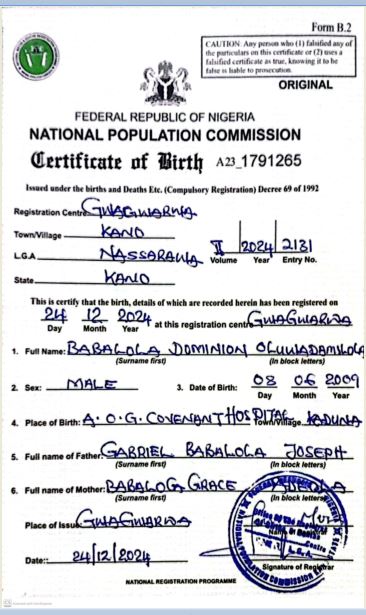 Form B.2
CAUTION: Any person who (1) falsified any of
the particulars on this certificate or (2) uses a
falsified certificate as true, knowing it to be
false is liable to prosecution.
ORIGINAL
FEDERAL REPUBLIC OF NIGERIA
NATIONAL POPULATION COMMISSION
Certificate of Birth A23_1791265
Issued under the births and Deaths Etc. (Compulsory Registration) Decree 69 of 1992
Registration Centre GWAGWARWA
Town/Village KANO
L.G.A NASSARAWA II 2024 2131
Volume Year Entry No.
State KANO
This is certify that the birth, details of which are recorded herein has been registered on
24 12 2024 at this registration centre GWAGWARWA
Day Month Year
1. Full Name: BABALOLA DOMINION OLUWADAMILOLA
(Surname first) (In block letters)
2. Sex: MALE 3. Date of Birth: 08 06 2009
Day Month Year
4. Place of Birth: A.O.G. COVENANT HOSPITAL Town/Village KADUNA
5. Full name of Father: GABRIEL BABALOLA JOSEPH
(Surname first) (In block letters)
6. Full name of Mother: BABALOLA GRACE
(Surname first) (In block letters)
Place of Issue: GWAGWARWA
Date: 24/12/2024
Signature of Registrar
NATIONAL REGISTRATION PROGRAMME